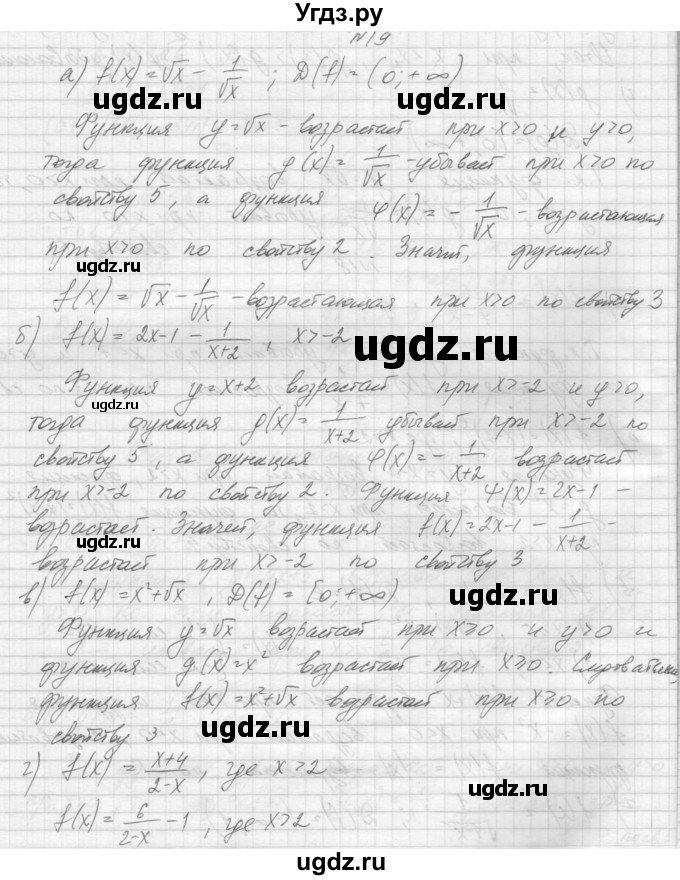 Угдз.ру
№19
а) f(x) = √x − 1/√x ; D(f) = (0; +∞)
Функция y=√x - возрастает при x>0 и y>0,
тогда функция g(x) = 1/√x - убывает при x>0 по
свойству 5, а функция φ(x) = − 1/√x - возрастающая
при x>0 по свойству 2. Значит, функция
f(x) = √x − 1/√x - возрастающая при x>0 по свойству 3
б) f(x) = 2x-1 − 1/(x+2) , x>-2
Функция y = x+2 возрастает при x>-2 и y>0,
тогда функция g(x) = 1/(x+2) убывает при x>-2 по
свойству 5, а функция φ(x) = − 1/(x+2) возрастает
при x>-2 по свойству 2. Функция ψ(x) = 2x-1 −
возрастает. Значит, функция f(x) = 2x-1 − 1/(x+2) −
возрастает при x>-2 по свойству 3
в) f(x) = x²+√x , D(f) = [0; +∞)
Функция y=√x возрастает при x≥0 и y>0 и
функция g(x) = x² возрастает при x≥0. Следовательно,
функция f(x) = x²+√x возрастает при x≥0 по
свойству 3
г) f(x) = (x+4)/(2-x) , где x>2
f(x) = 6/(2-x) − 1 , где x>2
ugdz.ru
ugdz.ru
ugdz.ru
ugdz.ru
ugdz.ru
ugdz.ru
ugdz.ru
ugdz.ru
ugdz.ru
ugdz.ru
ugdz.ru
ugdz.ru
ugdz.ru
ugdz.ru